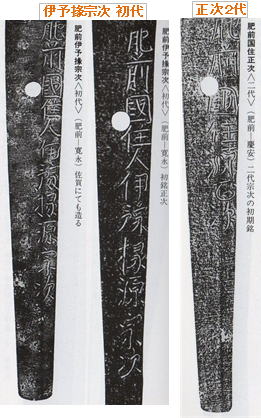 伊予掾宗次 初代
正次2代
肥前国住正次〈二代〉(肥前―慶安)二代宗次の初期銘
肥前國住源正次
肥前伊予掾宗次〈初代〉(肥前―寛永)初銘正次
肥前國住人伊豫掾源宗次
肥前伊予掾宗次〈初代〉(肥前―寛永)佐賀にても造る
肥前國住人伊豫掾源宗次